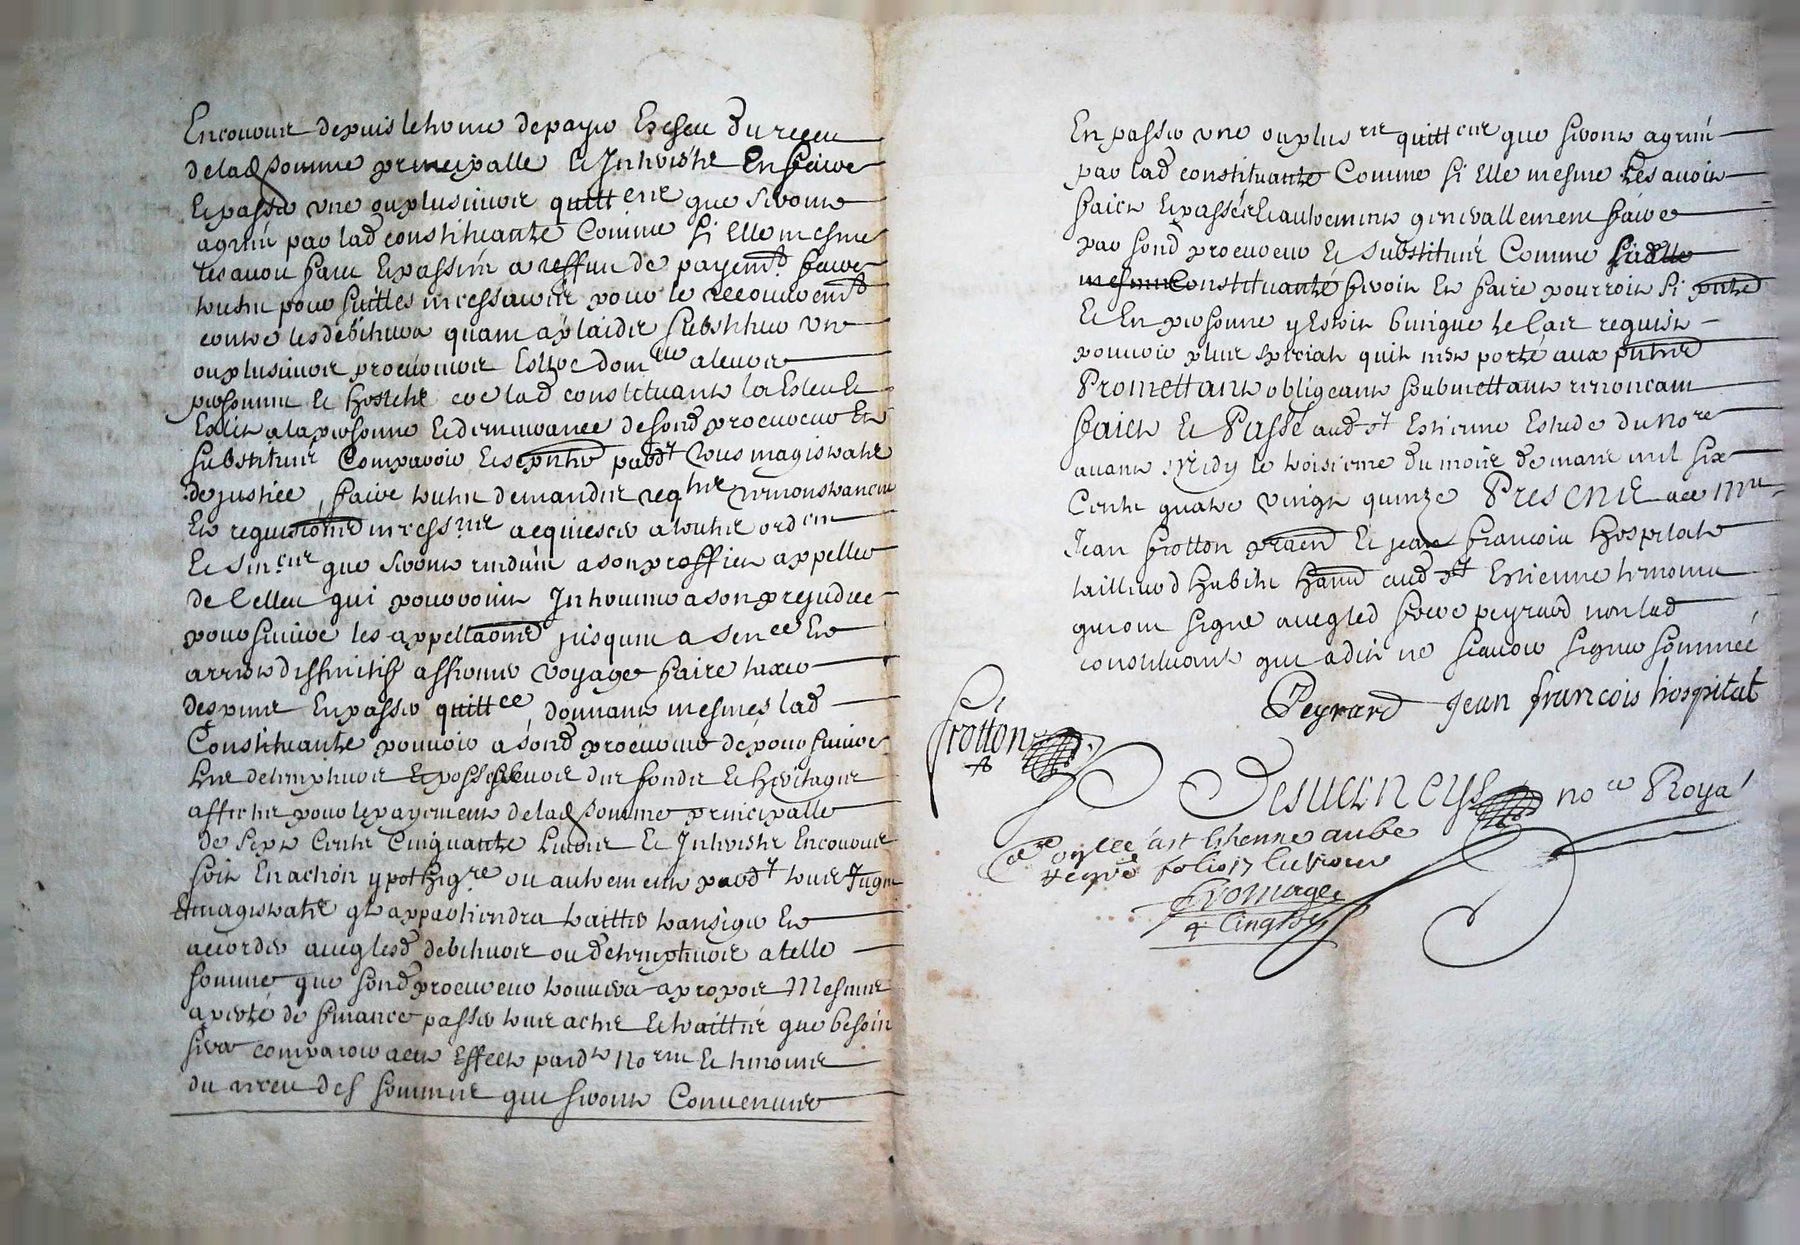 Encourue depuis le terme de payer Et receu du receu
de lad somme principalle Et Interestz En faire
Et passer une ou plusieurs quitt ences que seront
agreer par lad constituante Comme si Elle mesme
les avoit faict Et passées a reffus de payemt faire
toutes poursuittes necessaires pour le recouvremt
contre les debiteurs quant a plaider substituer un
ou plusieurs procureurs Eslire domlle a leurs
personne Et hostelz que lad constituante la Esleu Et
Eslit a la personne Et demeurance de sond procureur Et
substitués Comparoir Et se pnter pardt tous magistratz
de justice, faire toutes demandes reqtes remonstrances
Et requisitions necessres acquiescer a toutes ordces
Et sences que seront rendues a son proffict appeller
de Celles qui pourroient Intervenir a son prejudice
poursuivre les appellaons jusques a sence Et
arrest diffinitif affirmer voyages faire taxer
despens En passer quittce, donnant mesmes lad
Constituante pouvoir a sond procureur de poursuivre
Les detempteurs Et possesseurs des fondz Et heritages
affectes pour le payement de lad somme principalle
de Sept Centz Cinquante Livres Et Interestz Encourus
soit En action ypothiqre ou autrement pardt tous Juges
Et magistratz ql appartiendra traitter transiger Et
accorder avec lesd debiteurs ou detempteurs a telle
somme que sond procureur trouvera a propos Mesmes
a perte de finance passer tous actes Et traittes que besoin
sera comparoir a cet Effect pardt Nores Et tesmoins
du receu des sommes que seront Convenues
En passer une ou plusrs quittces que seront agreer
par lad constituante Comme si Elle mesme Les avoit
faict Et passées Et autrement generallement faire
par sond procureur Et substitués Comme si Elle
mesme Constituante feroit Et faire pourroit si pnte
Et En personne y Estoit bienque le Cas requist
pouvoir plus special quil nest porté aux pntes
Promettant obligeant soubmettant renonçant
faict Et Passé aud st Estienne Estude du Nore
avant midy le troisieme du mois de mars mil six
Centz quatre vingt quinze PRESENTZ a ce Mre
Jean frotton praen Et jean francois hospital
tailleur d habitz hantz aud st Estienne tesmoins
qui ont signé avec led sieur peyrard non lad
constituante que a dit ne scavoir signer sommée
Peyrard Jean francois hospital
frotton
Desverneys nore Royal
Con lléé a st Estienne au be
reçeu folio 17
fromage